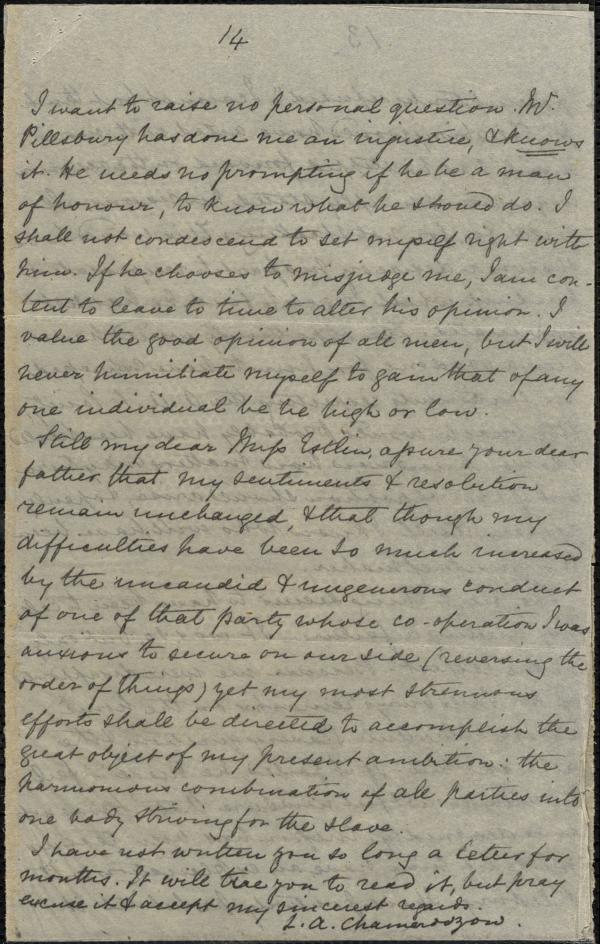 14
I want to raise no personal question. Mr.
Pillsbury has done me an injustice, & knows
it. He needs no prompting if he be a man
of honour, to know what he should do. I
shall not condescend to set myself right with
him. If he chooses to misjudge me, I am con-
tent to leave to time to alter his opinion. I
value the good opinion of all men, but I will
never humiliate myself to gain that of any
one individual be he high or low.
Still my dear Miss Estlin, assure your dear
father that my sentiments & resolution
remain unchanged, & that though my
difficulties have been so much increased
by the uncandid & ungenerous conduct
of one of that party whose co-operation I was
anxious to secure on our side (reversing the
order of things) yet my most strenuous
efforts shall be directed to accomplish the
great object of my present ambition: the
harmonious combination of all parties into
one body striving for the slave.
I have not written you so long a letter for
months. It will tire you to read it, but pray
excuse it & accept my sincerest regards.
L. A. Chamerovzow.